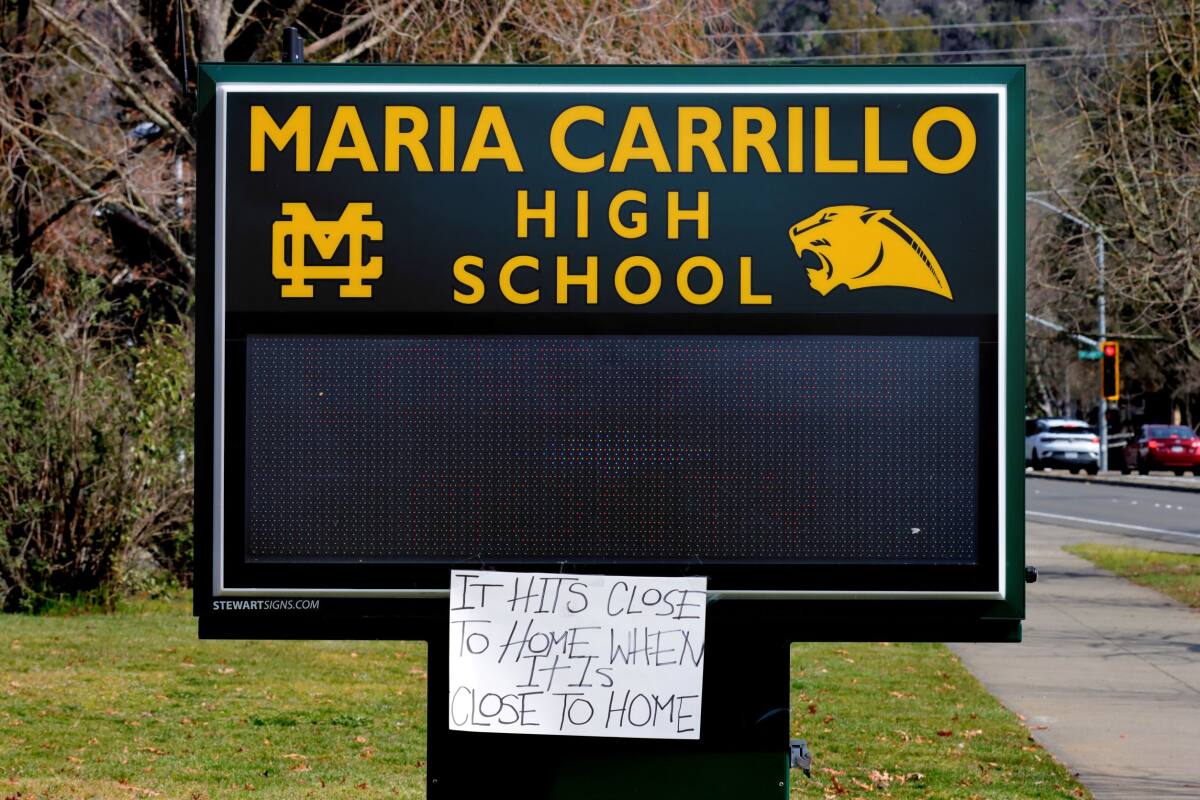 MARIA CARRILLO
HIGH
MC
SCHOOL
STEWARTSIGNS.COM
IT HITS CLOSE
TO HOME WHEN
IT IS
CLOSE TO HOME